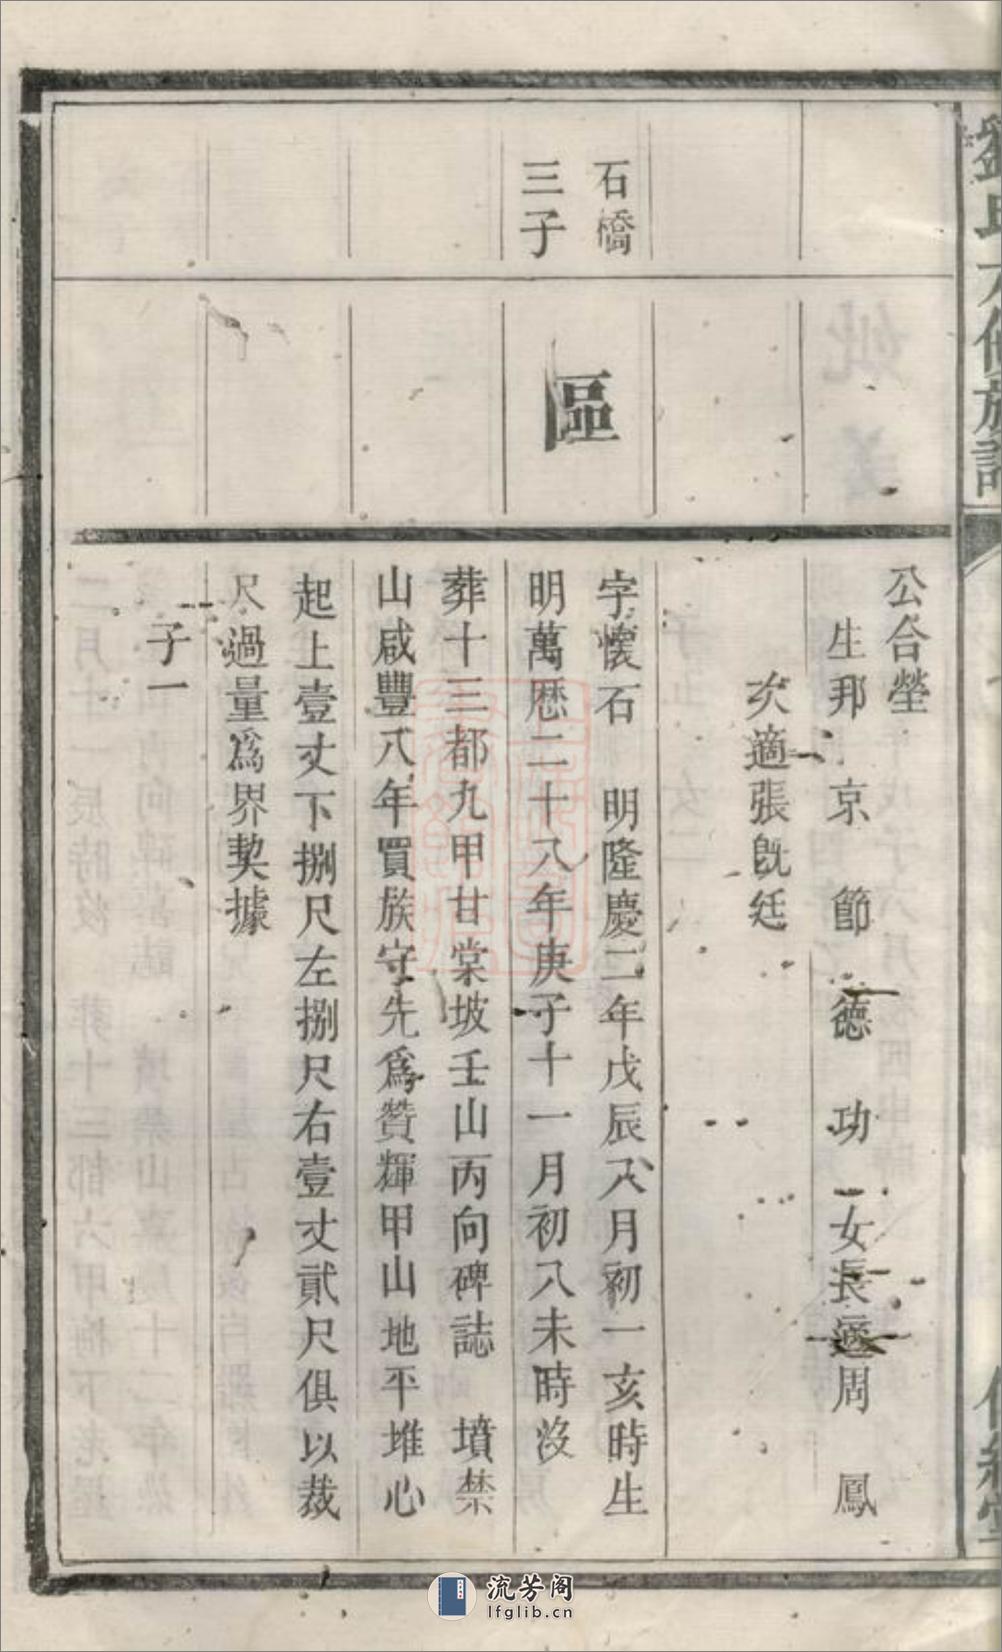 公合塋
生邦京節德功 女長適周鳳
次適張旣廷
石橋
三子
區
字懷石 明隆慶二年戊辰八月初一亥時生
明萬歷二十八年庚子十一月初八未時沒
葬十三都九甲甘棠坡壬山丙向碑誌 墳禁
山咸豐八年買族守先爲贊輝甲山地平堆心
起上壹丈下捌尺左捌尺右壹丈貳尺俱以裁
尺過量爲界契據
子一
流芳阁
lfglib.cn